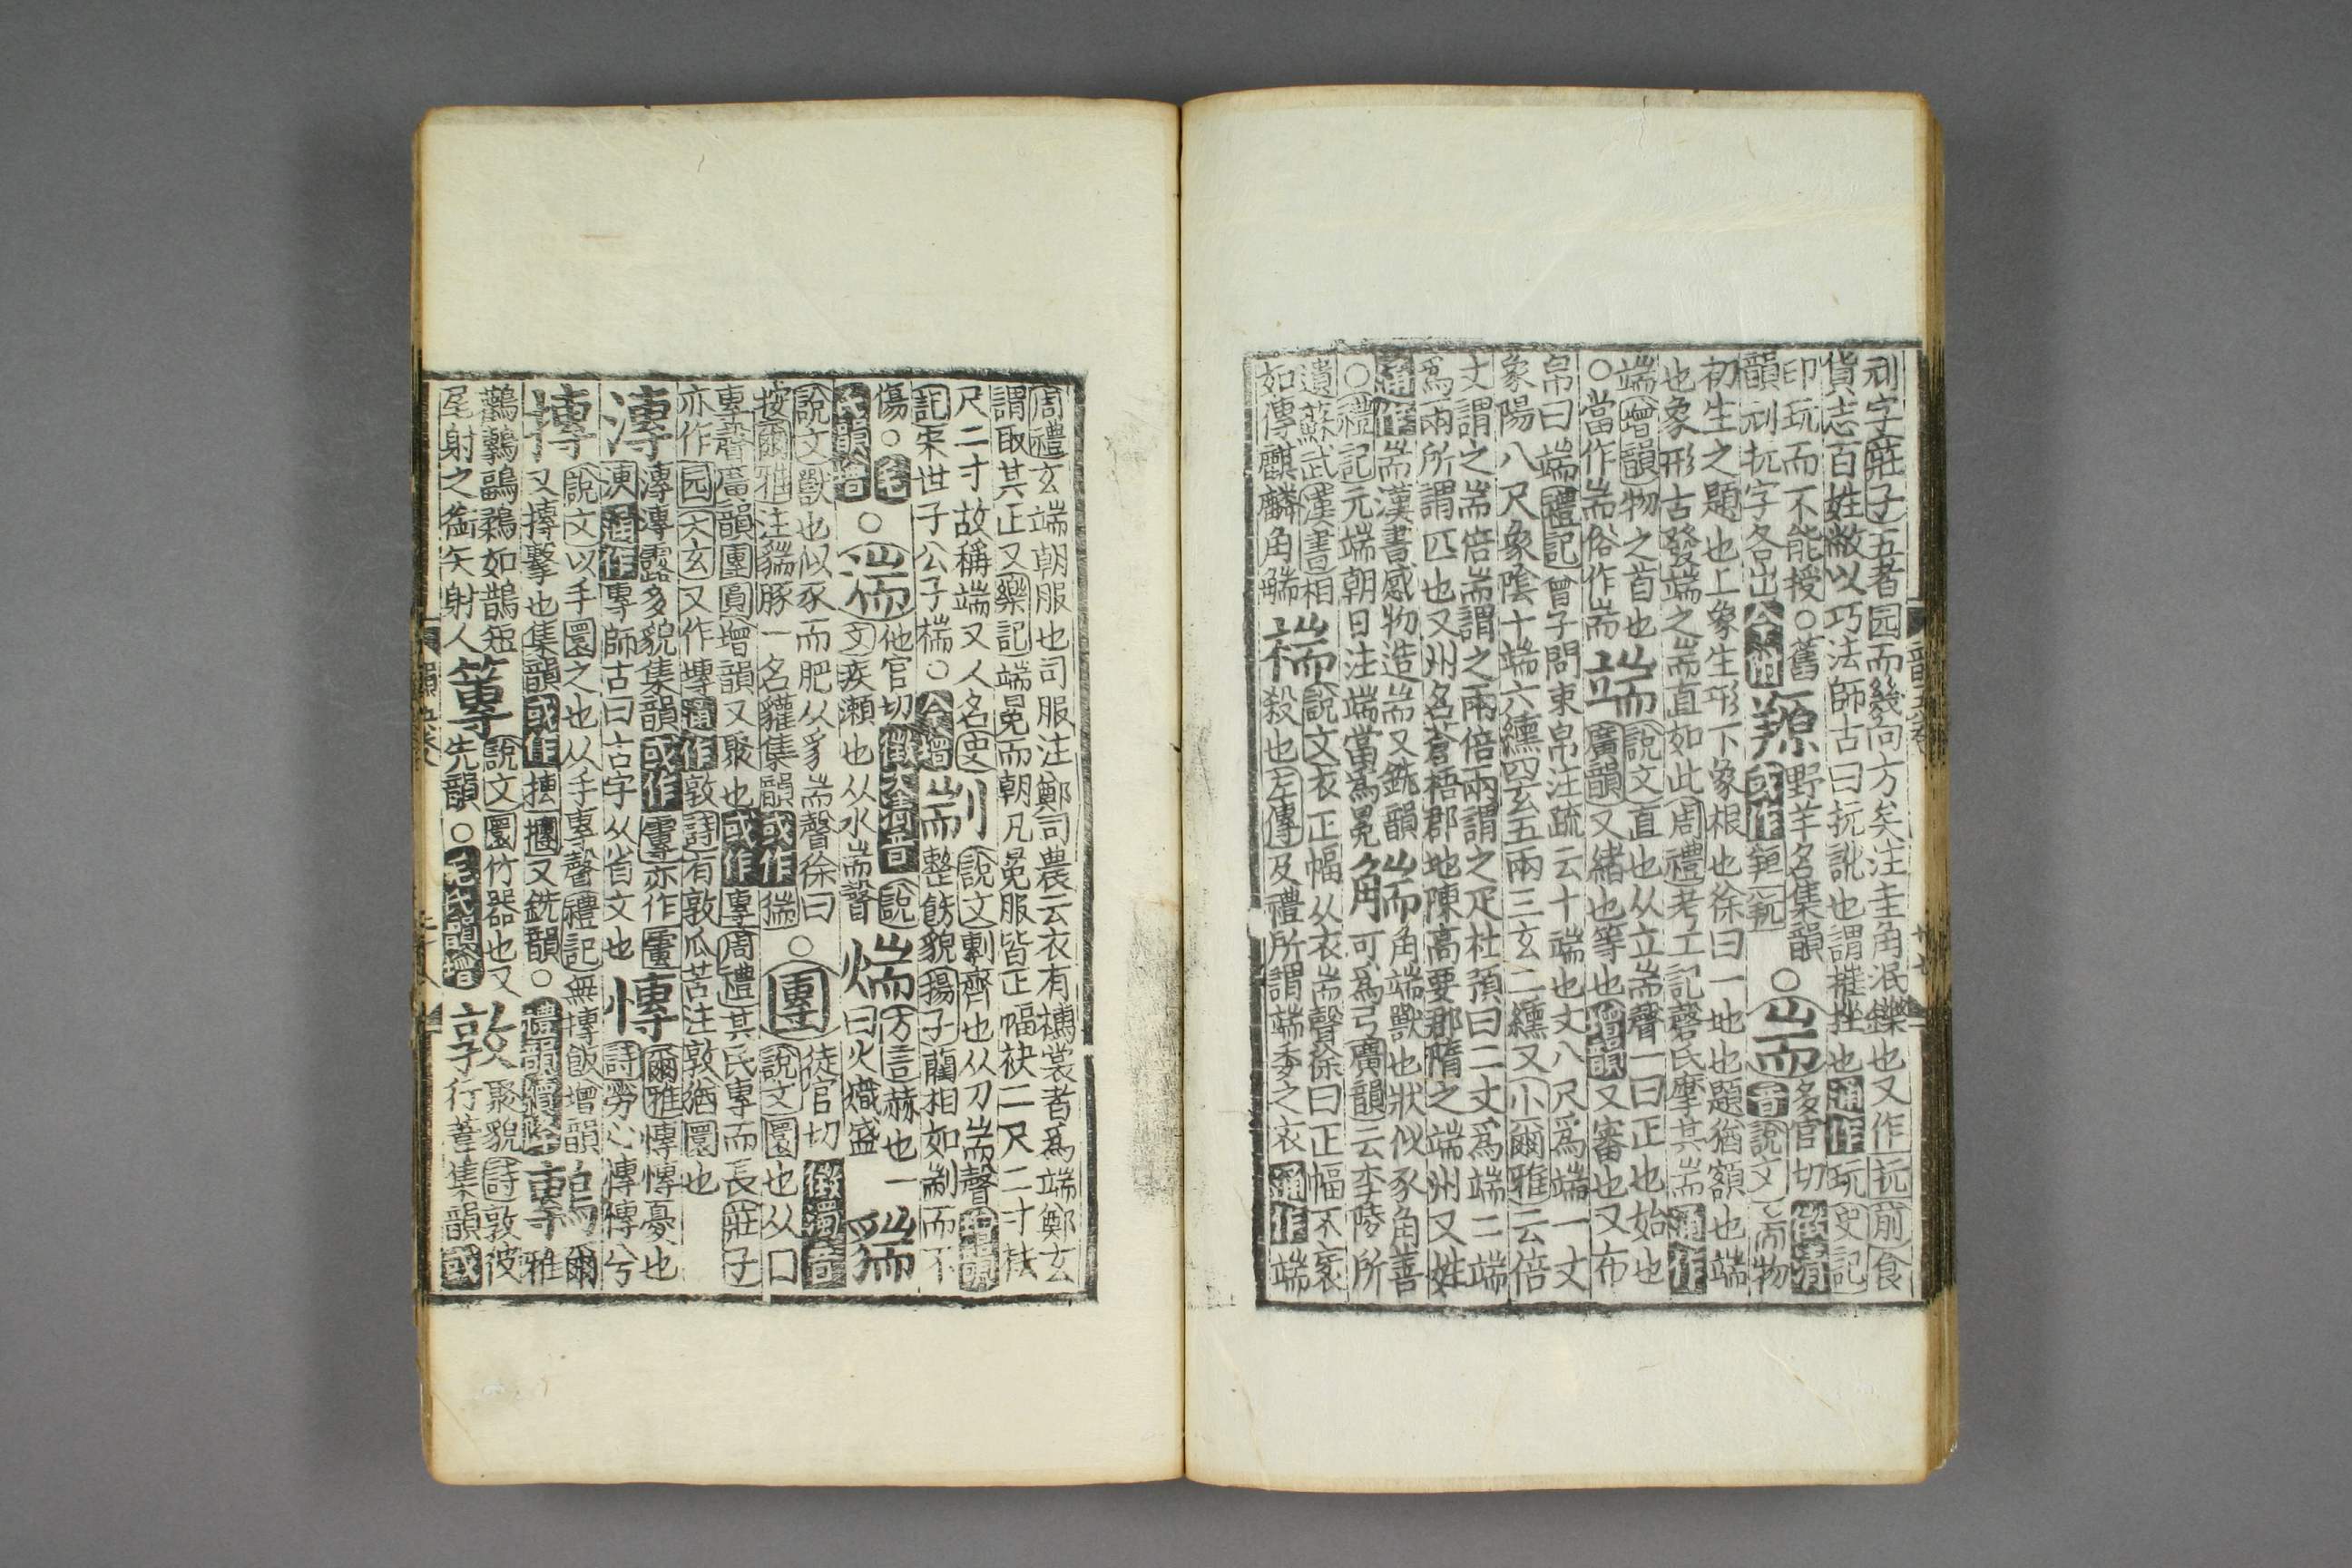 刓字莊子五者园而幾向方矣注圭角泯鑠也又作抏前食
貨志百姓抏敝以巧法師古曰抏訛也謂摧挫也通作玩史記
印玩而不能授○舊
韻刓抏字各出今附
羱
野羊名集韻
或作䴷
○耑
多官切
音說文物
初生之題也上象生形下象根也徐曰一地也題猶額也端
也象形古發端之耑直如此周禮考工記磬氏摩其耑通作
端增韻物之首也
○當作耑俗作耑
端
說文直也从立耑聲一曰正也始也
廣韻又緒也等也增韻又審也又布
帛曰端禮記曾子問束帛注疏云十端也丈八尺爲端一丈
象陽八尺象陰十端六纁四玄五兩三玄二纁又小爾雅云倍
丈謂之耑倍耑謂之兩倍兩謂之疋杜預曰二丈爲端二端
爲兩所謂匹也又州名蒼梧郡地陳高要郡隋之端州又姓
通作耑漢書感物造耑又銑韻
○禮記元端朝日注端當爲冕
觿
角端獸也狀似豕角善
可爲弓廣韻云李陵所
遺蘇武漢書相
如傳麒麟角端
褍
說文衣正幅从衣耑聲徐曰正幅不衺
殺也左傳及禮所謂端委之衣通作端
周禮玄端朝服也司服注鄭司農云衣有襦裳者爲端鄭玄
謂取其正又樂記端冕而朝凡冕服皆正幅袂二尺二寸袪
尺二寸故稱端又人名史
記宋世子公子褍○今增
剬
說文剸齊也从刀耑聲
整飭貌揚子藺相如剬而不
傷○毛
氏韻增
○湍
他官切
文疾瀨也从水耑聲
煓
方言赫也一
曰火熾盛
貒
說文獸也似豕而肥从豸耑聲徐曰
按爾雅注貒豚一名貛集韻或作猯
○團
徒官切
說文圜也从囗
專聲廣韻團圓增韻又聚也或作專周禮其民專而長莊子
亦作园太玄又作塼通作敦詩有敦瓜苦注敦猶團也
漙
漙漙露多貌集韻或作霉亦作
通作專師古曰古字从省文也
慱
爾雅慱慱憂也
詩勞心慱慱兮
摶
說文以手圜之也从手專聲禮記無摶飯增韻
又摶擊也集韻或作揣又銑韻○
鷒
爾
雅
鸛鷒鶝鶔如鵲短
尾射之銜矢射人
篿
說文圜竹器也又
先韻○毛氏韻增
敦
聚貌詩敦彼
行葦集韻或